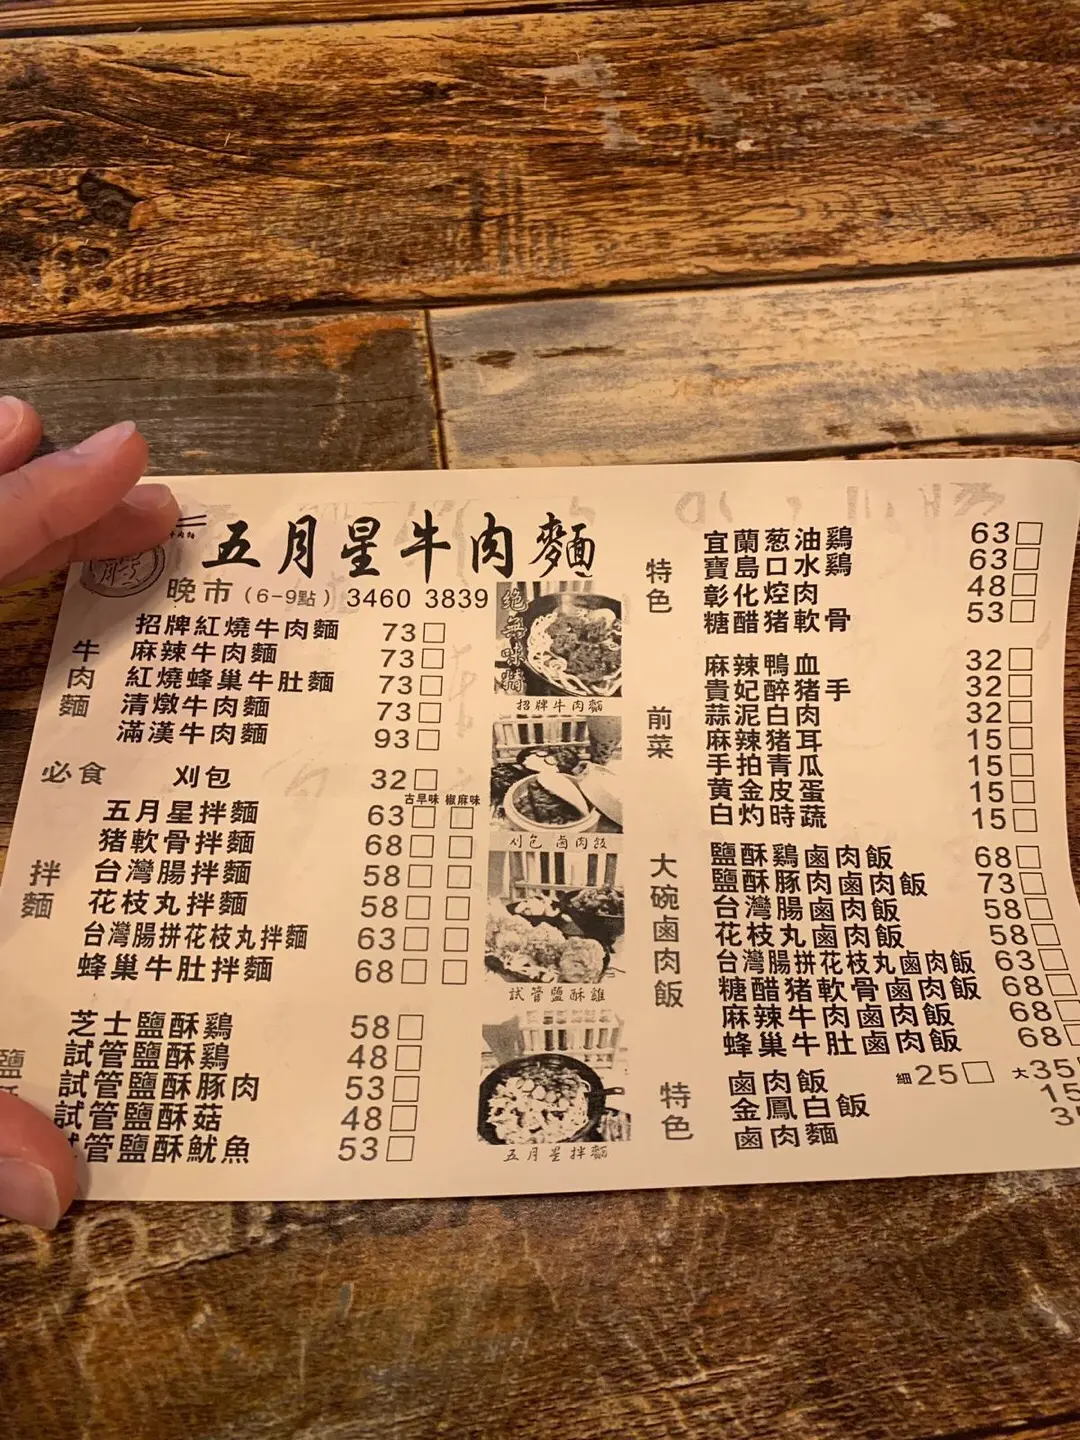 五月星牛肉麵
晚市 (6-9點) 3460 3839
牛肉麵
招牌紅燒牛肉麵 73
麻辣牛肉麵 73
紅燒蜂巢牛肚麵 73
清燉牛肉麵 73
滿漢牛肉麵 93
必食 刈包 32
古早味 椒麻味
拌麵
五月星拌麵 63
豬軟骨拌麵 68
台灣腸拌麵 58
花枝丸拌麵 58
台灣腸拼花枝丸拌麵 63
蜂巢牛肚拌麵 68
鹽
芝士鹽酥鷄 58
試管鹽酥鷄 48
試管鹽酥豚肉 53
試管鹽酥菇 48
試管鹽酥魷魚 53
絕無味精
招牌牛肉麵
刈包 鹵肉飯
試管鹽酥雞
五月星拌麵
特色
宜蘭葱油鷄 63
寶島口水鷄 63
彰化焢肉 48
糖醋豬軟骨 53
前菜
麻辣鴨血 32
貴妃醉豬手 32
蒜泥白肉 32
麻辣豬耳 15
手拍青瓜 15
黃金皮蛋 15
白灼時蔬 15
大碗鹵肉飯
鹽酥鷄鹵肉飯 68
鹽酥豚肉鹵肉飯 73
台灣腸鹵肉飯 58
花枝丸鹵肉飯 58
台灣腸拼花枝丸鹵肉飯 63
糖醋豬軟骨鹵肉飯 68
麻辣牛肉鹵肉飯 68
蜂巢牛肚鹵肉飯 68
特色
鹵肉飯 細25 大35
金鳳白飯 15
鹵肉麵